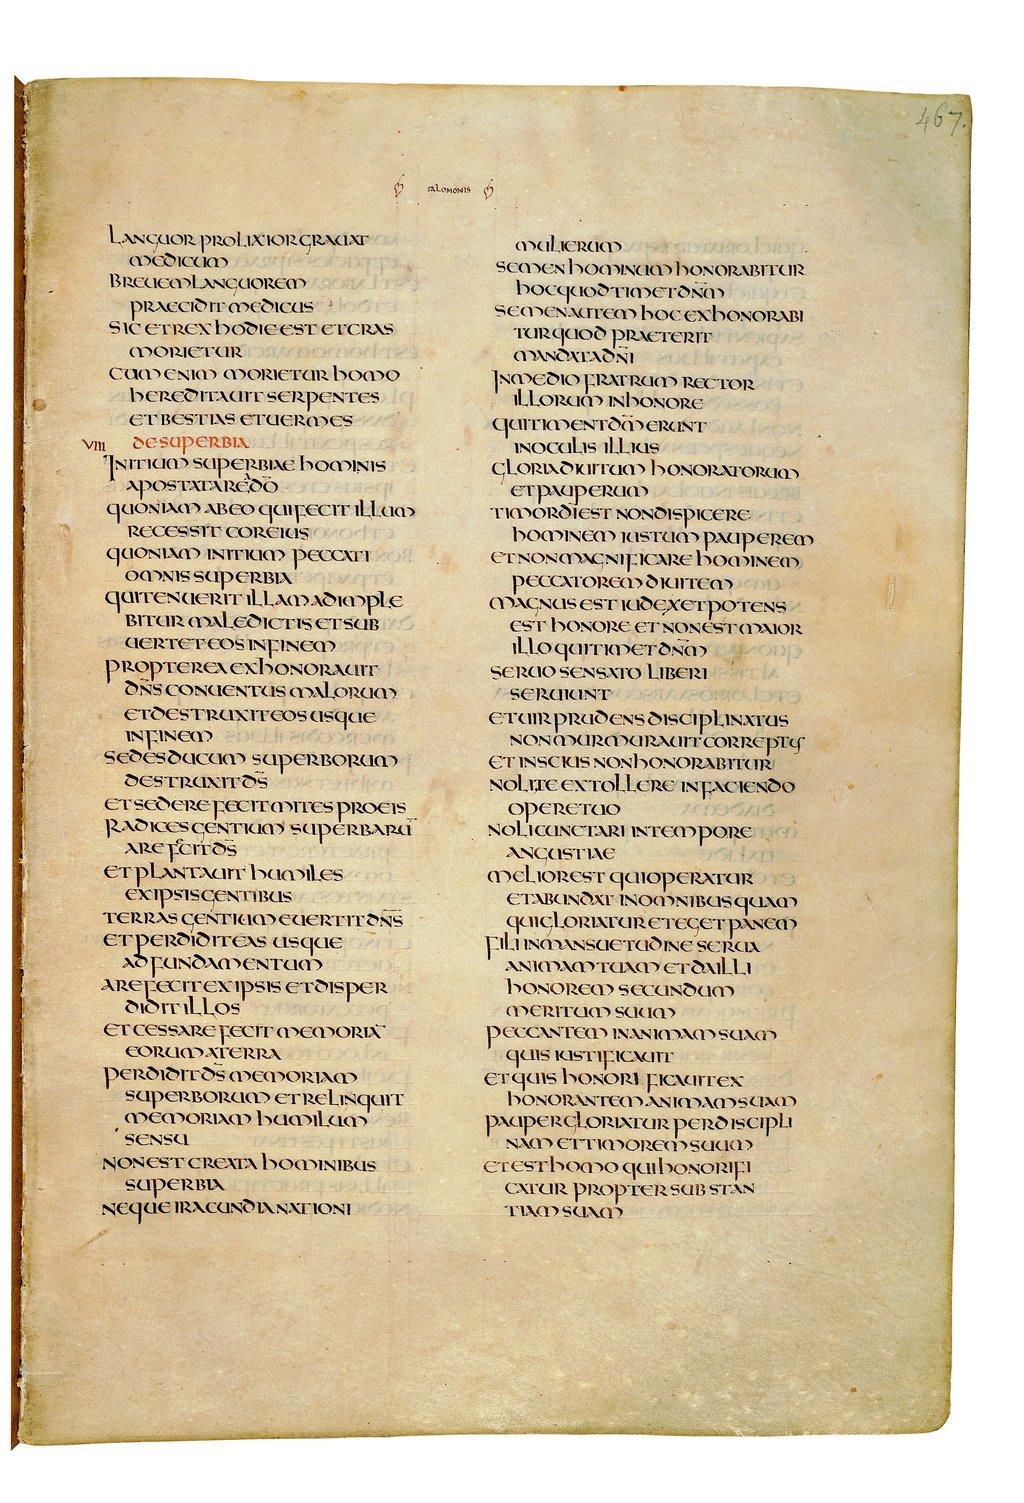 467.
SALOMONIS
LANGUOR PROLIXIOR GRAUAT
MEDICUM
BREUEM LANGUOREM
PRAECIDIT MEDICUS
SIC ET REX HODIE EST ET CRAS
MORIETUR
CUM ENIM MORIETUR HOMO
HEREDITAUIT SERPENTES
ET BESTIAS ET UERMES
VIII DE SUPERBIA
INITIUM SUPERBIAE HOMINIS
APOSTATARE A D̄Ō
QUONIAM AB EO QUI FECIT ILLUM
RECESSIT COR EIUS
QUONIAM INITIUM PECCATI
OMNIS SUPERBIA
QUI TENUERIT ILLAM ADIMPLE
BITUR MALEDICTIS ET SUB
UERTET EOS IN FINEM
PROPTEREA EXHONORAUIT
D̄N̄S CONUENTUS MALORUM
ET DESTRUXIT EOS USQUE
IN FINEM
SEDES DUCUM SUPERBORUM
DESTRUXIT D̄S̄
ET SEDERE FECIT MITES PRO EIS
RADICES GENTIUM SUPERBARŪ
AREFECIT D̄S̄
ET PLANTAUIT HUMILES
EX IPSIS GENTIBUS
TERRAS GENTIUM EUERTIT D̄N̄S̄
ET PERDIDIT EAS USQUE
AD FUNDAMENTUM
AREFECIT EX IPSIS ET DISPER
DIDIT ILLOS
ET CESSARE FECIT MEMORIA
EORUM A TERRA
PERDIDIT D̄S̄ MEMORIAM
SUPERBORUM ET RELINQUIT
MEMORIAM HUMILUM
SENSU
NON EST CREATA HOMINIBUS
SUPERBIA
NEQUE IRACUNDIA NATIONI
MULIERUM
SEMEN HOMINUM HONORABITUR
HOC QUOD TIMET D̄N̄M
SEMEN AUTEM HOC EXHONORABI
TUR QUOD PRAETERIT
MANDATA D̄N̄I
IN MEDIO FRATRUM RECTOR
ILLORUM IN HONORE
QUI TIMENT D̄M̄ ERUNT
IN OCULIS ILLIUS
GLORIA DIUITUM HONORATORUM
ET PAUPERUM
TIMOR D̄I EST NON DISPICERE
HOMINEM IUSTUM PAUPEREM
ET NON MAGNIFICARE HOMINEM
PECCATOREM DIUITEM
MAGNUS EST IUDEX ET POTENS
EST HONORE ET NON EST MAIOR
ILLO QUI TIMET D̄N̄M
SERUO SENSATO LIBERI
SERUIUNT
ET UIR PRUDENS DISCIPLINATUS
NON MURMURAUIT CORREPTUS
ET INSCIUS NON HONORABITUR
NOLITE EXTOLLERE IN FACIENDO
OPERE TUO
NOLI CUNCTARI IN TEMPORE
ANGUSTIAE
MELIOR EST QUI OPERATUR
ET ABUNDAT IN OMNIBUS QUAM
QUI GLORIATUR ET EGET PANEM
FILI IN MANSUETUDINE SERUA
ANIMAM TUAM ET DA ILLI
HONOREM SECUNDUM
MERITUM SUUM
PECCANTEM IN ANIMAM SUAM
QUIS IUSTIFICAUIT
ET QUIS HONORIFICAUIT EX
HONORANTEM ANIMAM SUAM
PAUPER GLORIATUR PER DISCIPLI
NAM ET TIMOREM SUUM
ET EST HOMO QUI HONORIFI
CATUR PROPTER SUBSTAN
TIAM SUAM